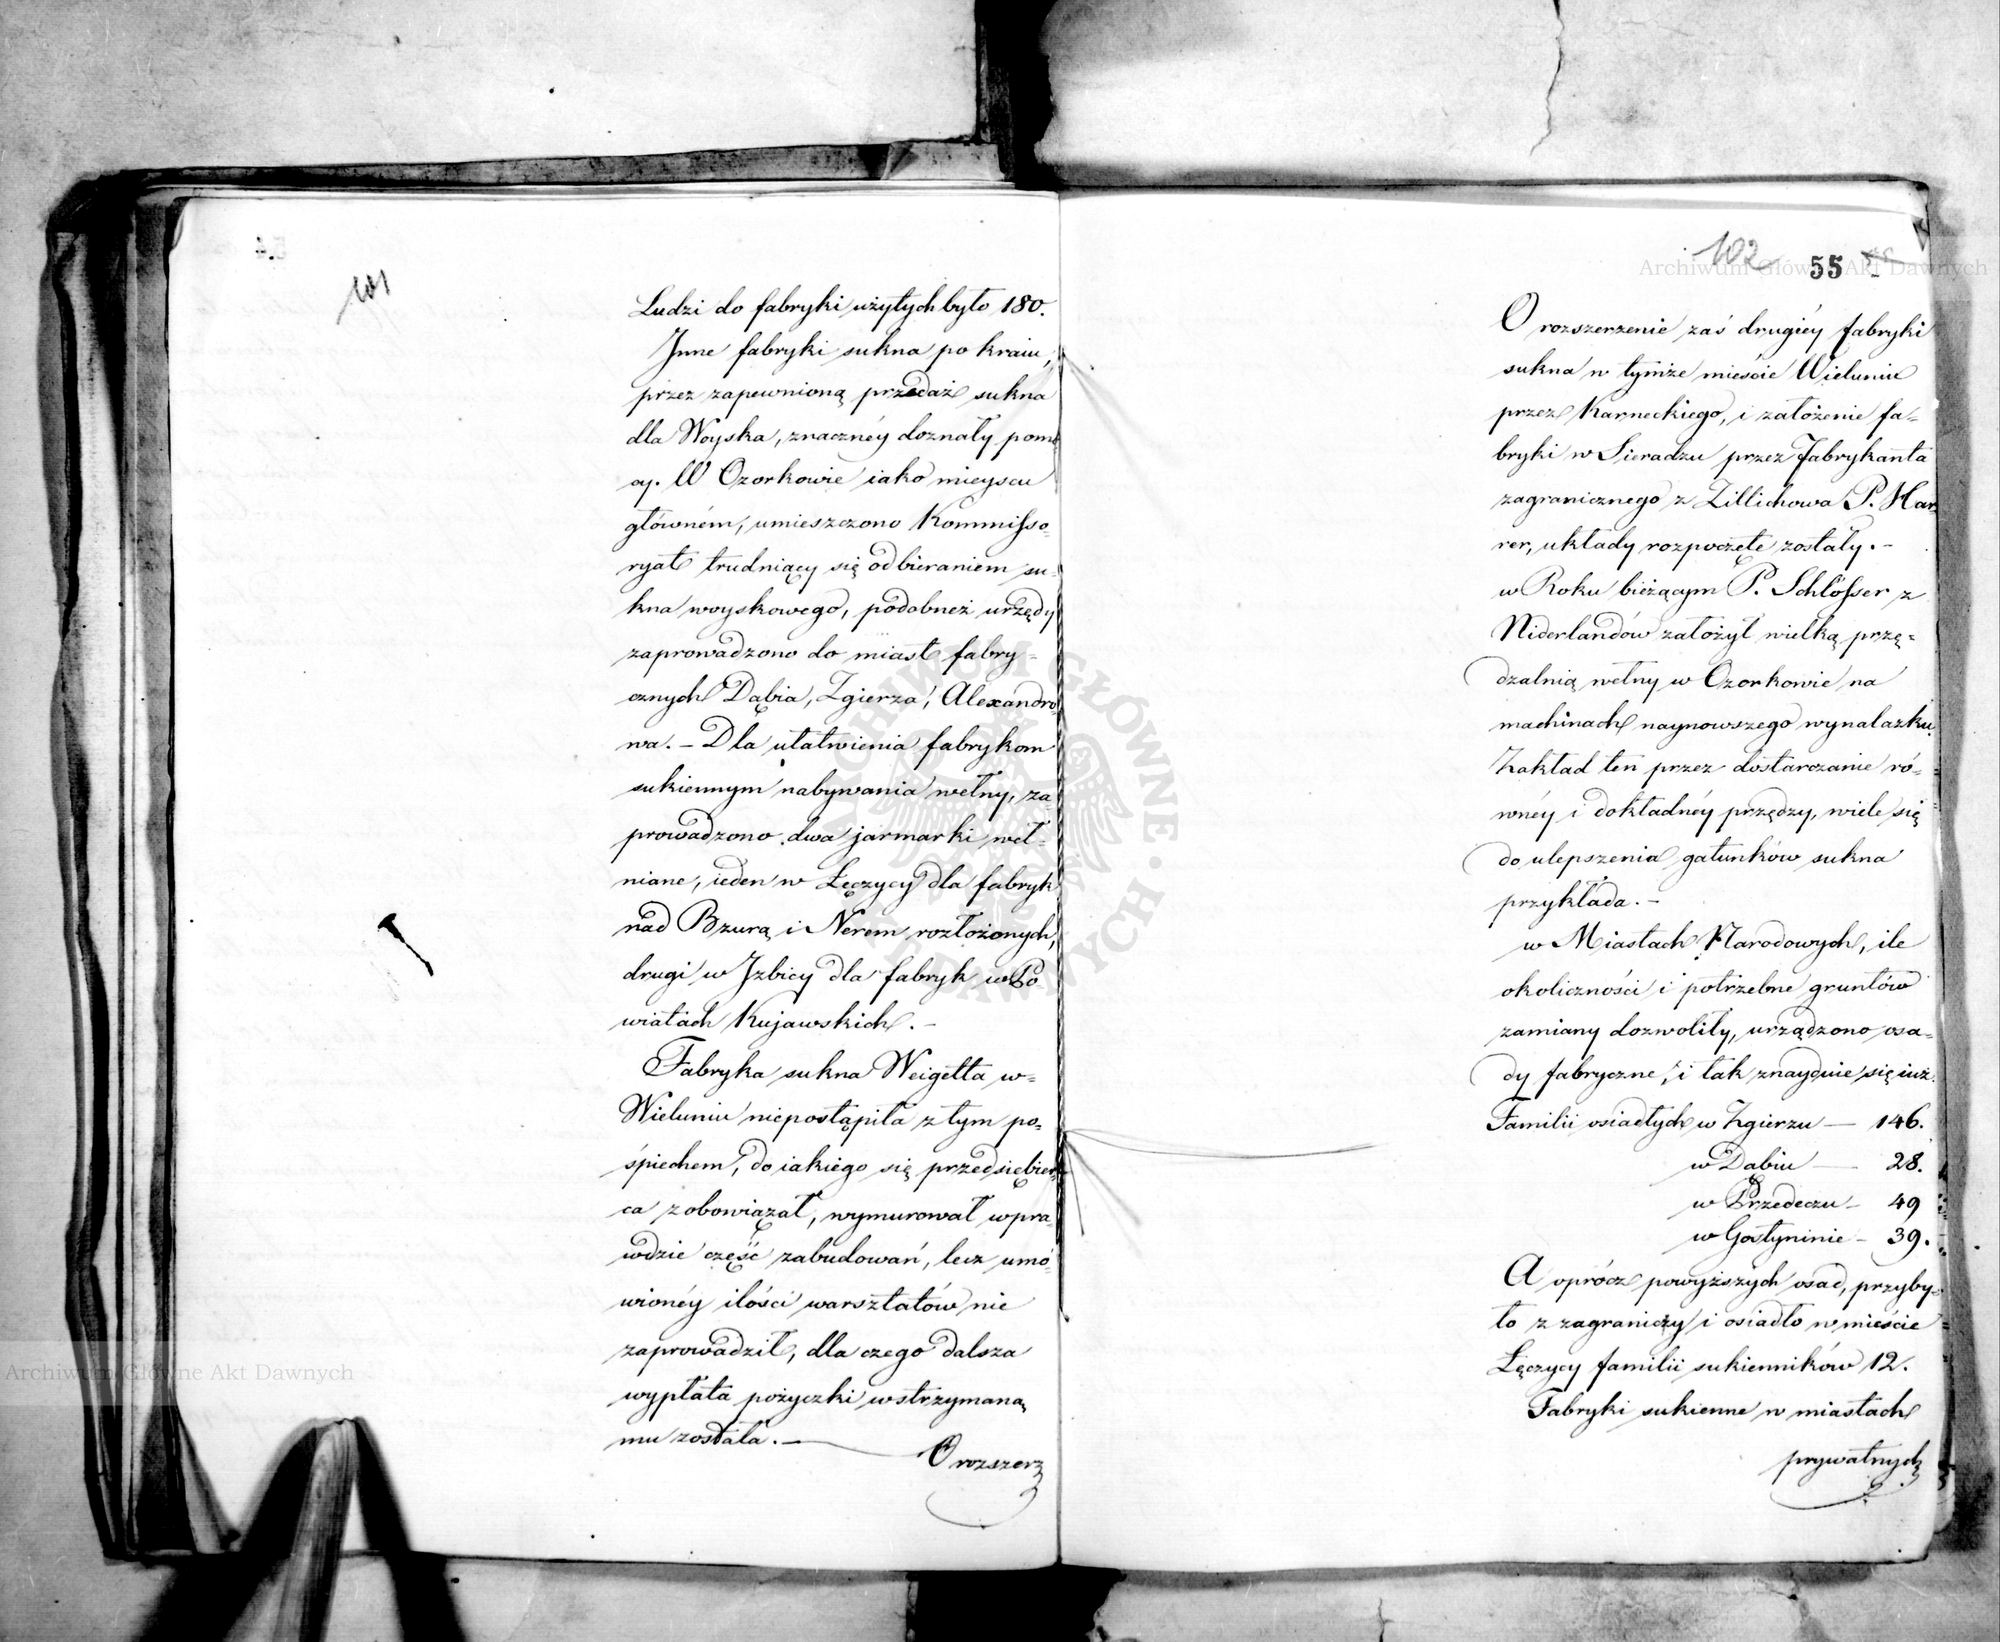 101
Ludzi do fabryki użytych było 180.
Inne fabryki sukna po kraiu,
przez zapewnioną przedaż sukna
dla Woyska, znacznéy doznały pomo
cy. W Ozorkowie iako mieyscu
główném, umieszczono Kommisso-
ryat trudniący się odbieraniem su-
kna woyskowego, podobneż urzędy
zaprowadzono do miast fabry-
cznych Dąbia, Zgierza, Alexandro
wa. – Dla ułatwienia fabrykom
sukiennym nabywania wełny, za
prowadzono dwa jarmarki weł-
niane, ieden w Łęczycy dla fabryk
nad Bzurą i Nerem rozłożonych,
drugi w Izbicy dla fabryk w Po-
wiatach Kujawskich. –
Fabryka sukna Weigetta w-
Wieluniu niepostąpiła z tym po-
śpiechem, do iakiego się przedsiębier-
ca zobowiązał, wymurował wpra-
wdzie część zabudowań, lecz umó-
wionéy ilości warsztatów nie
zaprowadził, dla czego dalsza
wypłata pożyczki wstrzymaną
mu została. –
O rozszerz
102
55
O rozszerzenie zaś drugiéy fabryki
sukna w tymże mieście Wieluniu
przez Karneckiego, i założenie fa-
bryki w Sieradzu przez Fabrykanta
zagranicznego z Zillichowa P. Har-
rer, układy rozpoczęte zostały. –
w Roku bieżącym P. Schlösser z
Niderlandów założył wielką przę-
dzalnią wełny w Ozorkowie na
machinach naynowszego wynalazku.
Zakład ten przez dostarczanie ró-
wnéy i dokładnéy przędzy, wiele się
do ulepszenia gatunków sukna
przykłada. –
w Miastach Narodowych, ile
okoliczności i potrzebne gruntów
zamiany dozwoliły, urządzono osa-
dy fabryczne, i tak znayduie się iuż
Familii osiadłych w Zgierzu — 146.
w Dąbiu — 28.
w Przedeczu – 49
w Gostyninie – 39.
A oprócz powyższych osad, przyby-
ło z zagranicy i osiadło w mieście
Łęczycy familii sukienników 12.
Fabryki sukienne w miastach
prywatnych
Archiwum Główne Akt Dawnych
Archiwum Główne Akt Dawnych
ARCHIWUM GŁÓWNE AKT DAWNYCH